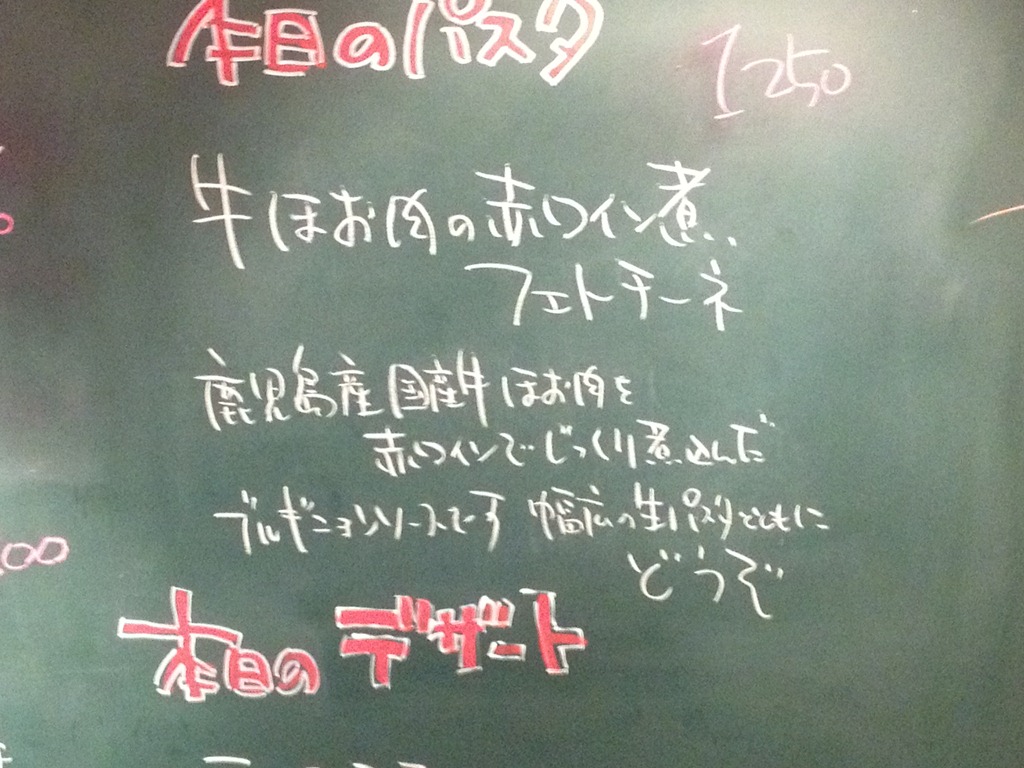 本日のパスタ
1250
牛ほお肉の赤ワイン煮
フェトチーネ
鹿児島産国産牛ほお肉を
赤ワインでじっくり煮込んだ
ブルギニョンソースです 幅広の生パスタとともに
どうぞ
本日のデザート
00